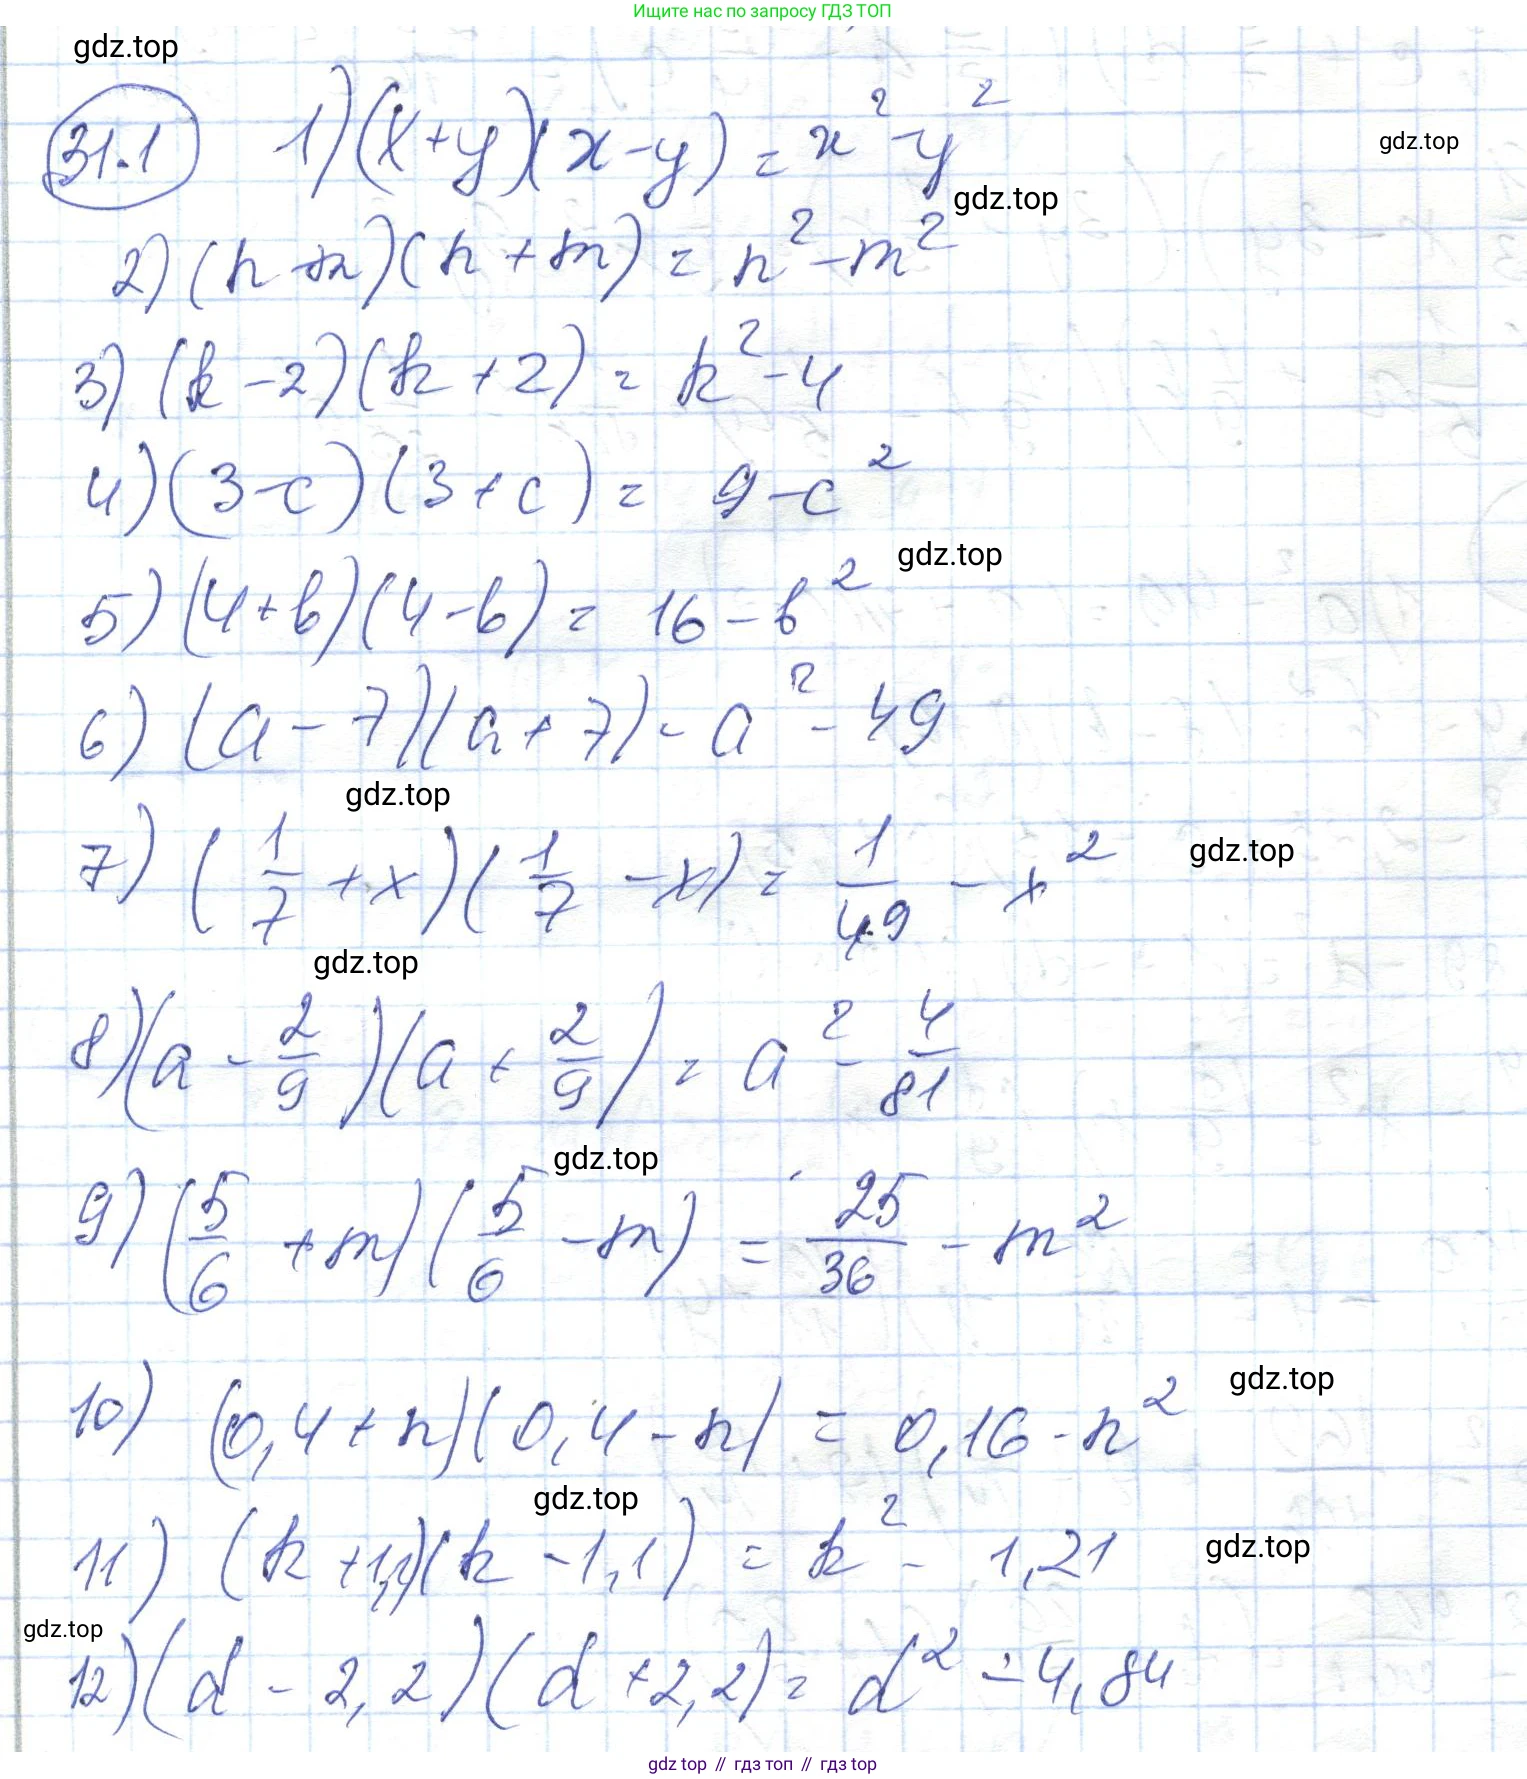 Ищите нас по запросу ГДЗ ТОП
gdz.top
31.1 1) (x+y)(x-y) = x²-y²
gdz.top
gdz.top
2) (n-m)(n+m) = n²-m²
3) (k-2)(k+2) = k²-4
4) (3-c)(3+c) = 9-c²
gdz.top
5) (4+b)(4-b) = 16-b²
6) (a-7)(a+7) = a²-49
gdz.top
7) (1/7+x)(1/7-x) = 1/49-x²
gdz.top
gdz.top
8) (a-2/9)(a+2/9) = a²-4/81
gdz.top
9) (5/6+m)(5/6-m) = 25/36-m²
gdz.top
10) (0,4+n)(0,4-n) = 0,16-n²
gdz.top
11) (k+1,1)(k-1,1) = k²-1,21
gdz.top
gdz.top
12) (d-2,2)(d+2,2) = d²-4,84
gdz.top // гдз топ // гдз top